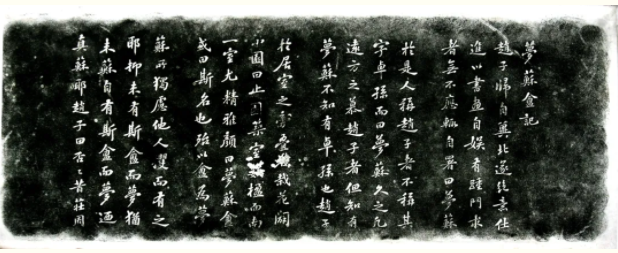 夢蘇盦記
趙子歸自奧北遂絕意仕
進以書畫自娛有踵門求
者無不應輒自署曰夢蘇
於是人稱趙子者不稱其
字卓孫而曰夢蘇久之凡
遠方之慕趙子者但知有
夢蘇不知有卓孫也趙子
於居室之旁疊㠀栽花闢
小園曰止園築室楹而南
一室尤精雅顏曰夢蘇盦
或曰斯名也殆以盦為夢
蘇所獨慮他人夢而有之
耶抑未有斯盦而夢猶
未蘇自有斯盦而夢迺
真蘇耶趙子曰否否昔莊周